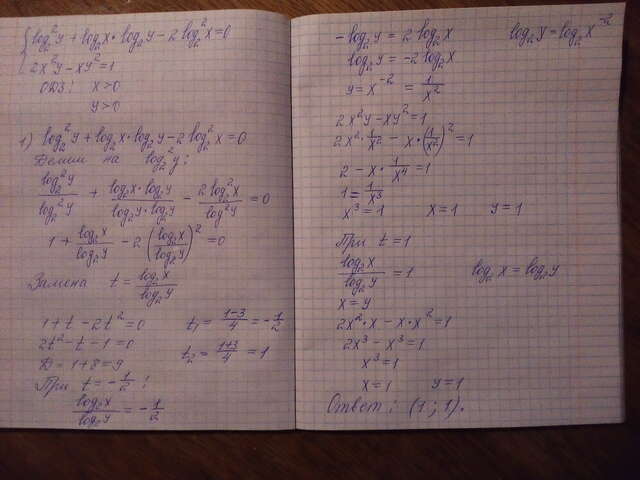 { log₂²y + log₂x·log₂y − 2log₂²x = 0
2x²y − xy² = 1
ОДЗ: x>0
y>0
1) log₂²y + log₂x·log₂y − 2log₂²x = 0
Делим на log₂²y:
log₂²y/log₂²y + log₂x·log₂y/log₂y·log₂y − 2log₂²x/log²y = 0
1 + log₂x/log₂y − 2(log₂x/log₂y)² = 0
Замена t = log₂x/log₂y
1 + t − 2t² = 0 t₁ = 1−3/4 = −1/2
2t² − t − 1 = 0
D = 1+8 = 9 t₂ = 1+3/4 = 1
При t = −1/2:
log₂x/log₂y = −1/2
−log₂y = 2log₂x log₂y = log₂x⁻²
log₂y = −2log₂x
y = x⁻² = 1/x²
2x²y − xy² = 1
2x²·1/x² − x·(1/x²)² = 1
2 − x·1/x⁴ = 1
1 = 1/x³
x³ = 1 x = 1 y = 1
При t = 1
log₂x/log₂y = 1 log₂x = log₂y
x = y
2x²·x − x·x² = 1
2x³ − x³ = 1
x³ = 1
x = 1 y = 1
Ответ: (1; 1).